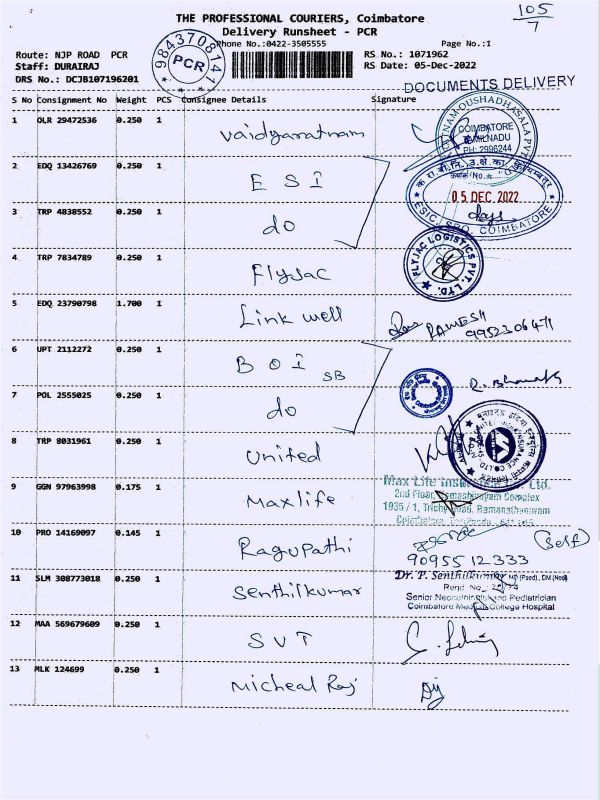 THE PROFESSIONAL COURIERS, Coimbatore
105/7
Delivery Runsheet - PCR
Phone No.:0422-3505555
Page No.:1
Route: NJP ROAD PCR
RS No.: 1071962
Staff: DURAIRAJ
RS Date: 05-Dec-2022
DRS No.: DCJB107196201
9843708141
PCR
DOCUMENTS DELIVERY
S No Consignment No Weight PCS Consignee Details Signature
1 OLR 29472536 0.250 1 Vaidyaratnam
COIMBATORE
TAMILNADU
PH: 2996244
2 EDQ 13426769 0.250 1 E S I
05 DEC 2022
ESIC, SRO, COIMBATORE
3 TRP 4838552 0.250 1 do
4 TRP 7834789 0.250 1 Flyjac
FLYJAC LOGISTICS PVT. LTD.
5 EDQ 23790798 1.700 1 Link well RAMESH
9952306471
6 UPT 2112272 0.250 1 B O I SB
7 POL 2555025 0.250 1 do
8 TRP 8031961 0.250 1 United
9 GGN 97963998 0.175 1 Maxlife
Max Life
2nd Floor, Complex
1935 / 1, Trichy Road, Ramanathapuram
10 PRO 14169097 0.145 1 Ragupathi (Self)
9095512333
11 SLM 308773018 0.250 1 Senthilkumar
Dr. P. Senthilkumar MD (Paed)., DM (Neo)
Senior Neonatologist and Pediatrician
Coimbatore Medical College Hospital
12 MAA 569679609 0.250 1 S V T
13 MLK 124699 0.250 1 Micheal Raj